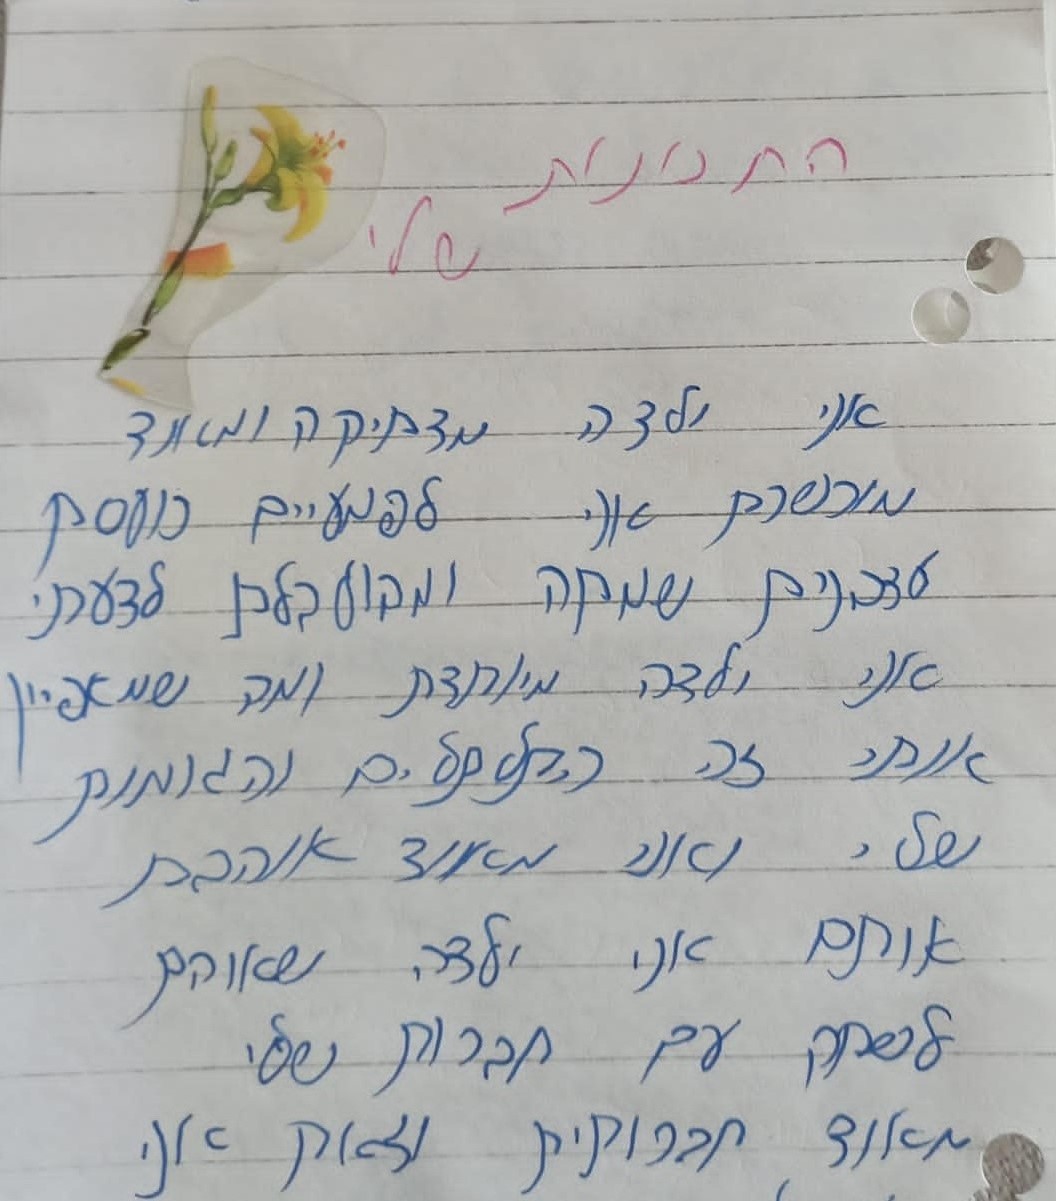 התכונות
שלי
אני ילדה מצחיקה ומאוד
מוכשרת אני לפמעיים כועסת
עצבנית שמחה ומבולבלת לדעתי
אני ילדה מיוחדת ומה שמאפיין
אותי זה התלתלים והגומות
שלי ואני מאוד אוהבת
אותם אני ילדה שאוהבת
לשחק עם חברות שלי
מאוד חברותית אני